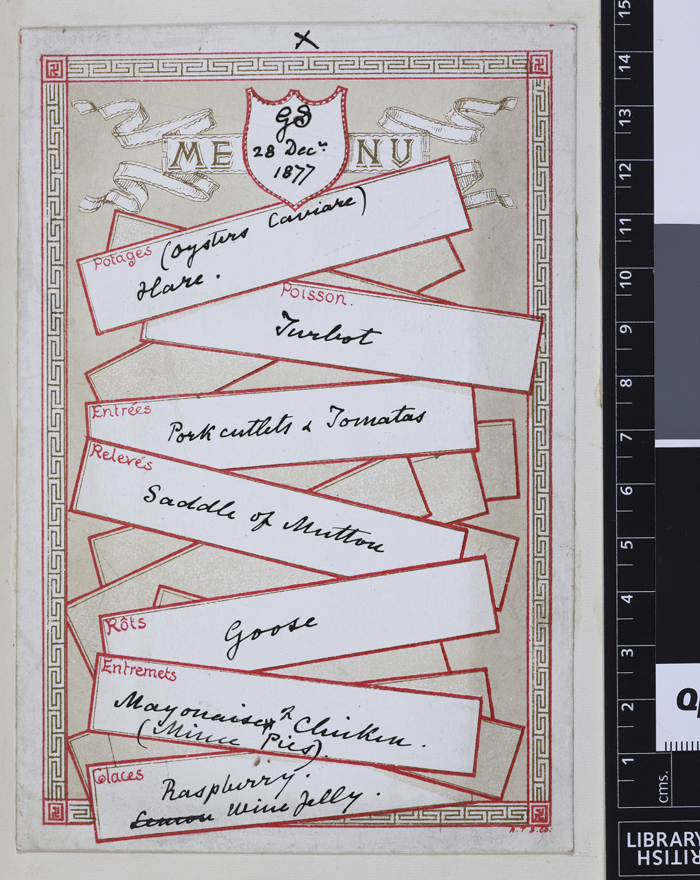 x
GS
28 Decr
1877
MENU
Potages (Oysters Caviare)
Hare.
Poisson.
Turbot
Entrées
Pork cutlets & Tomatas
Relevés
Saddle of Mutton
Rôts
Goose
Entremets
Mayonaise Chicken.
(Mince Pies).
Glaces
Raspberry.
Lemon Wine Jelly.
15
14
13
12
11
10
9
8
7
6
5
4
3
2
1
cms.
LIBRARY
BRITISH